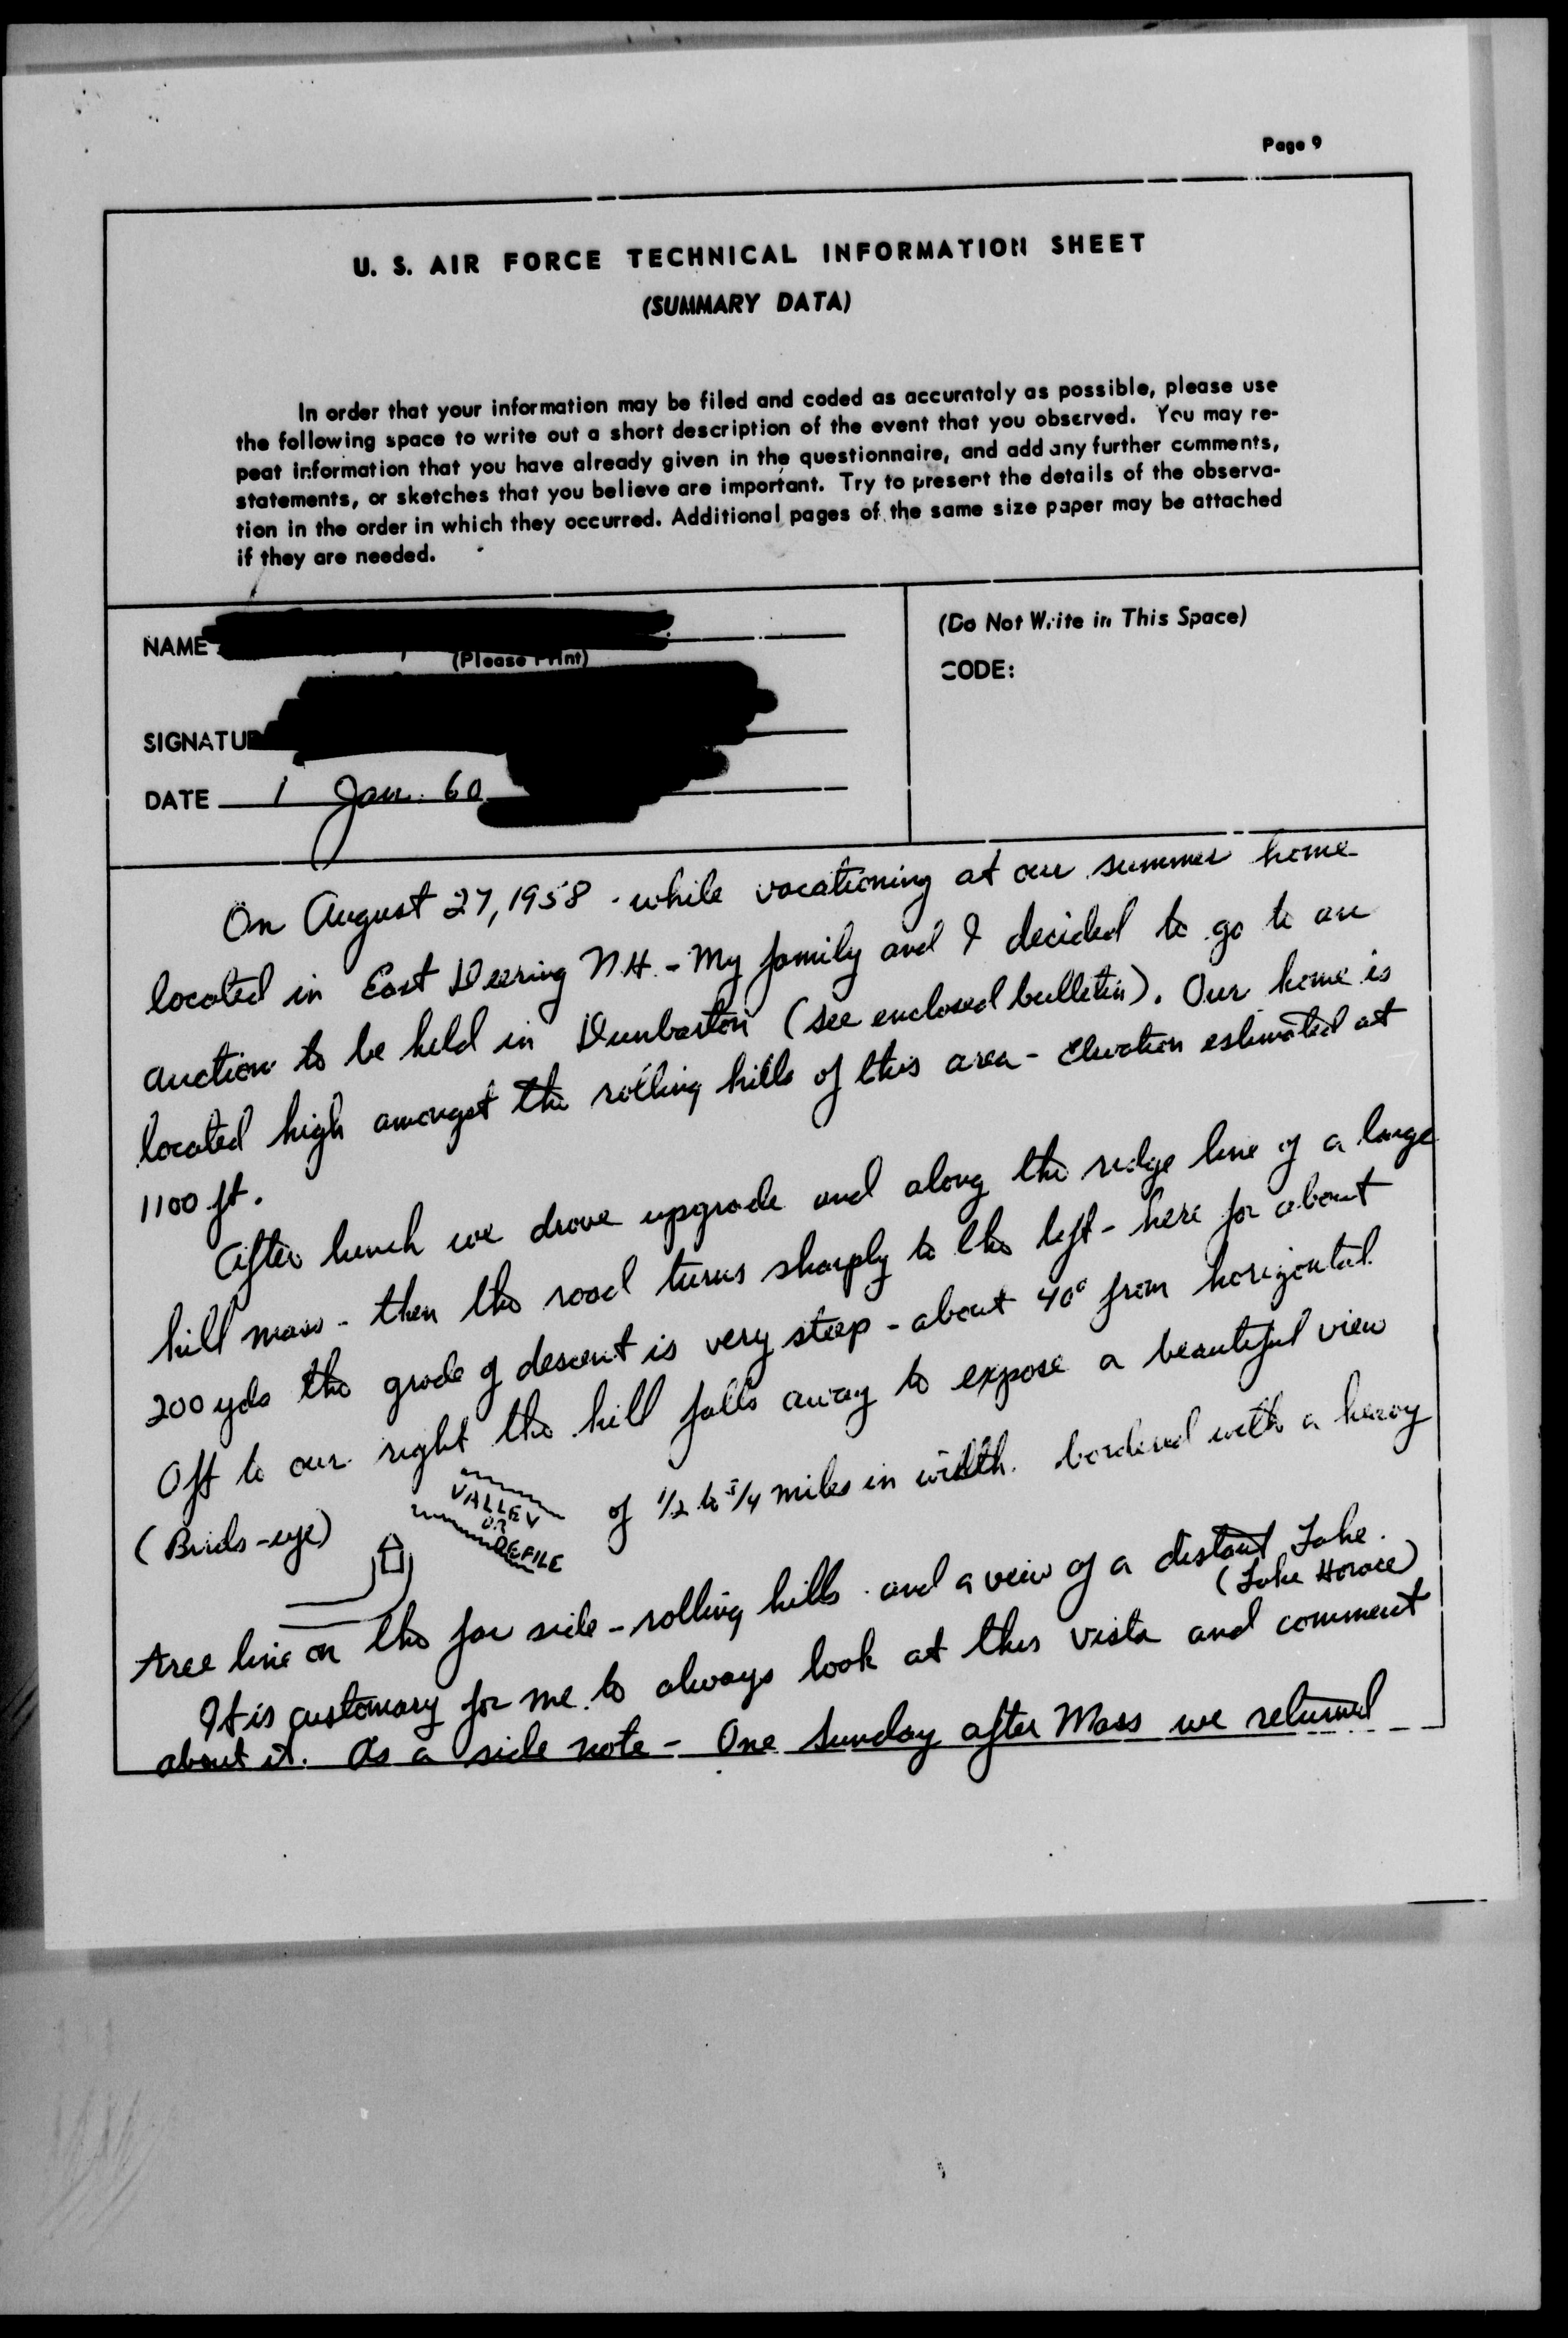 Page 9
U. S. AIR FORCE TECHNICAL INFORMATION SHEET
(SUMMARY DATA)
In order that your information may be filed and coded as accurately as possible, please use
the following space to write out a short description of the event that you observed. You may re-
peat information that you have already given in the questionnaire, and add any further comments,
statements, or sketches that you believe are important. Try to present the details of the observa-
tion in the order in which they occurred. Additional pages of the same size paper may be attached
if they are needed.
NAME
(Please Print)
(Do Not Write in This Space)
CODE:
SIGNATU
DATE 1 Jan. 60
On August 27, 1958 - while vacationing at our summer home
located in East Deering N.H. - My family and I decided to go to an
auction to be held in Dunbarton (see enclosed bulletin). Our home is
located high amongst the rolling hills of this area - Elevation estimated at
1100 ft.
After lunch we drove upgrade and along the ridge line of a large
hill mass - then the road turns sharply to the left - here for about
200 yds the grade of descent is very steep - about 40° from horizontal.
Off to our right the hill falls away to expose a beautiful view
(Birds-eye) VALLEY OR DEFILE of 1/2 to 3/4 miles in width. bordered with a heavy
tree line on the far side - rolling hills - and a veiw of a distant Lake.
(Lake Horace)
It is customary for me to always look at this vista and comment
about it. As a side note - One Sunday after Mass we returned